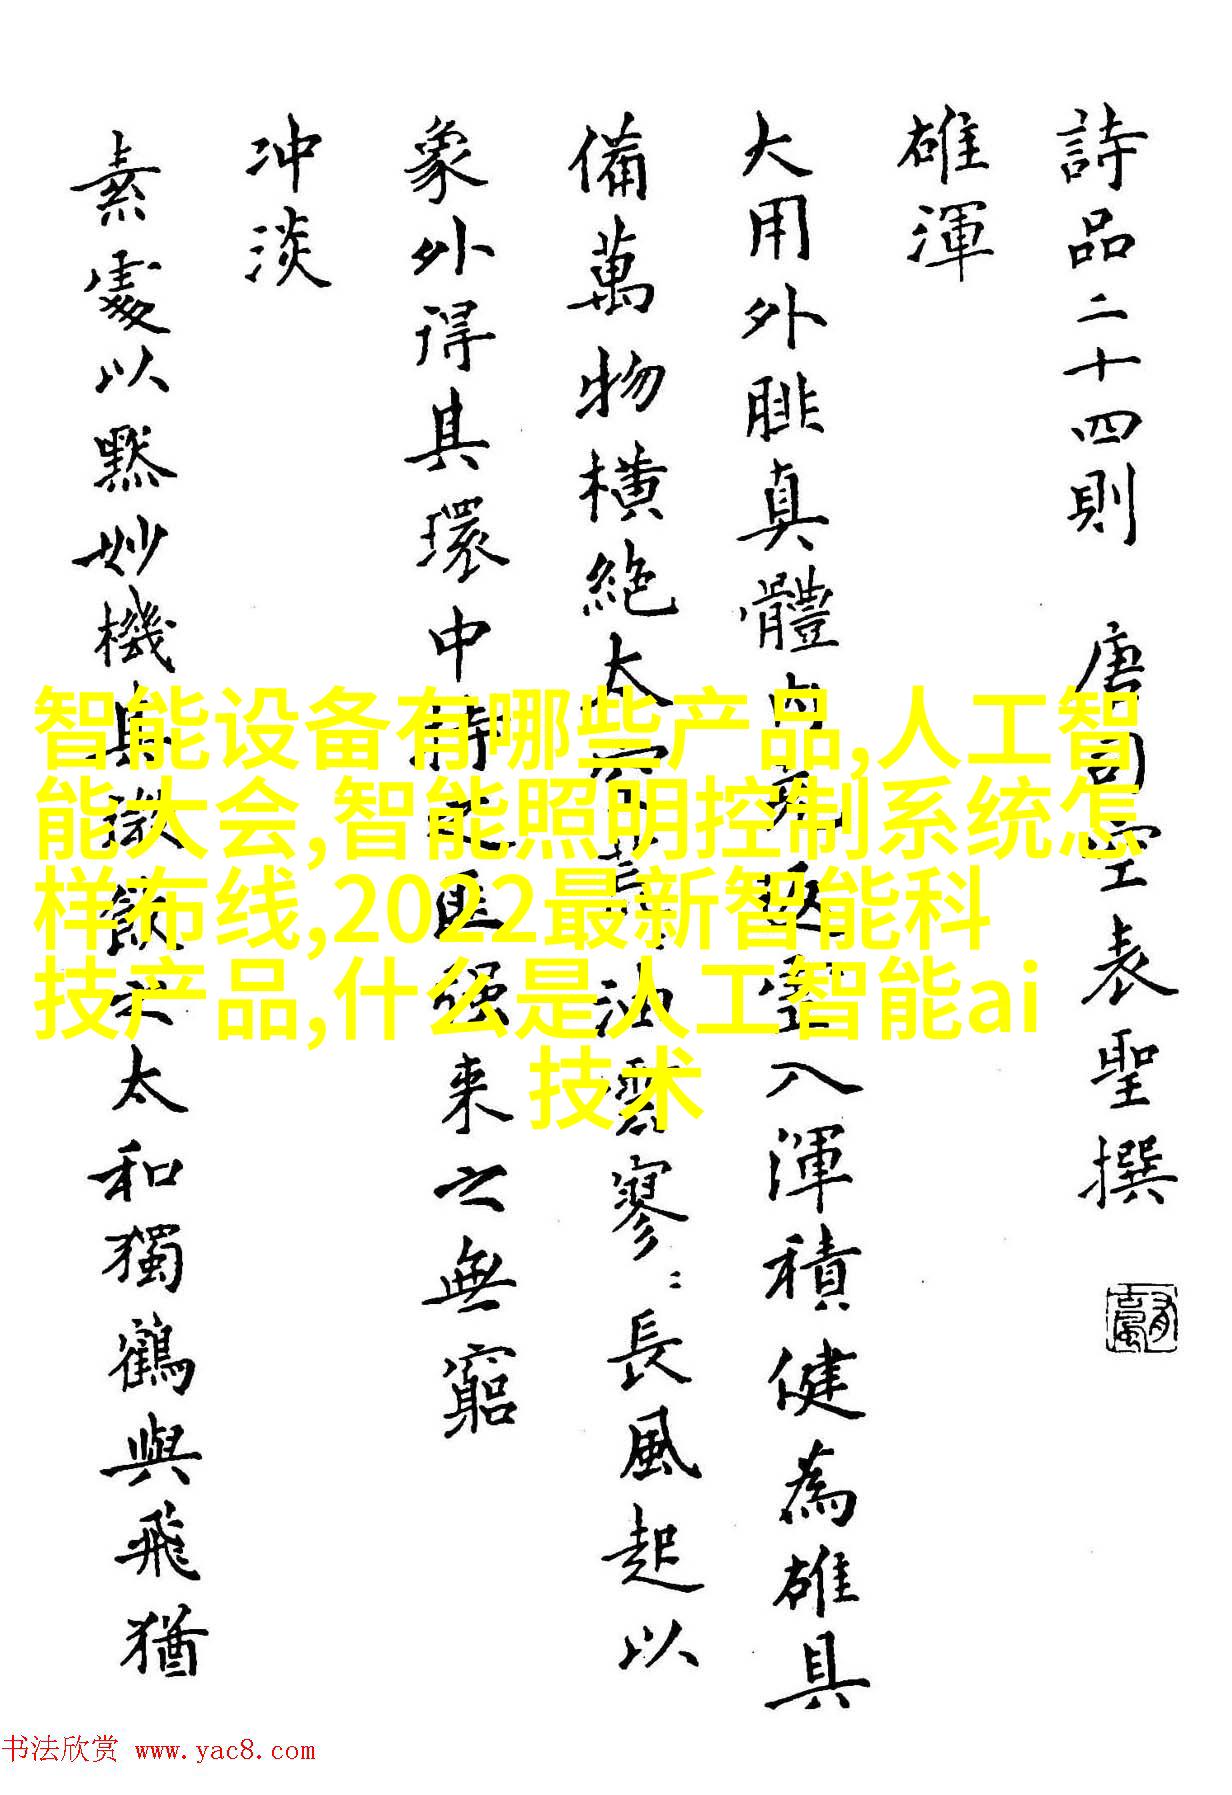 詩品二十四則 唐司空表聖撰
雄渾
大用外腓真體內充返虛入渾積健為雄具
備萬物橫絕太空荒荒油雲寥〻長風起以
象外得其環中持之匪强来之無窮
冲淡
素處以默妙機其微飲之太和獨鶴與飛猶
智能设备有哪些产品,人工智
能大会,智能照明控制系统怎
样布线,2022最新智能科
技产品,什么是人工智能ai
技术
书法欣赏 www.yac8.com